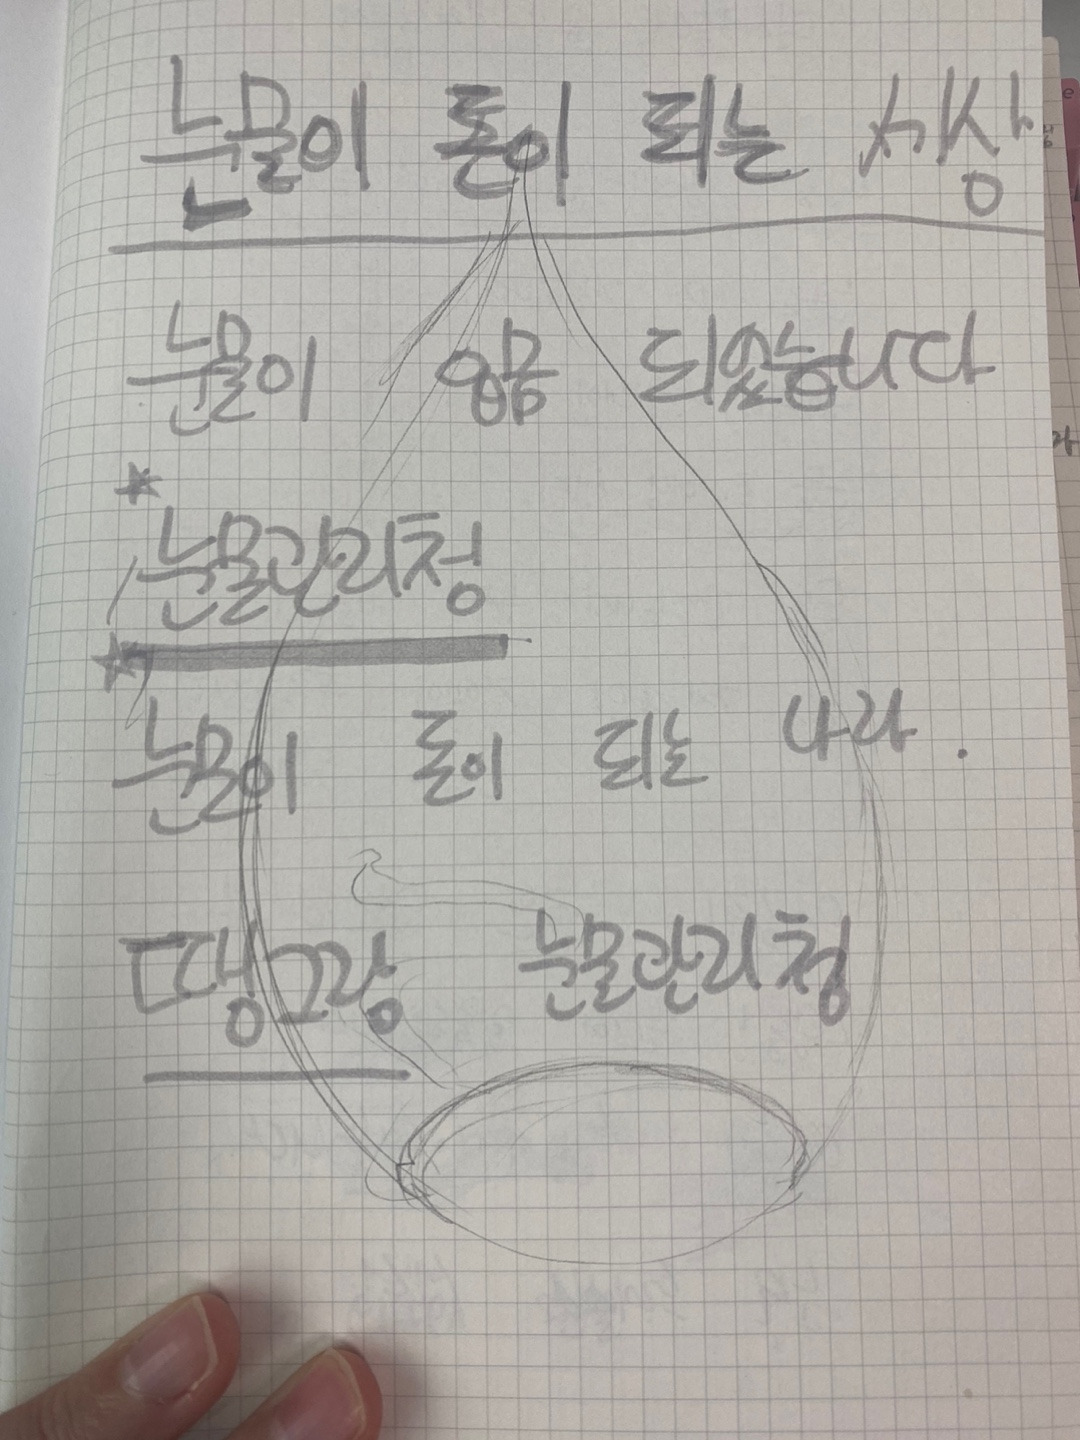 눈물이 돈이 되는 세상
눈물이 않음 되었습니다
눈물관리청
눈물이 돈이 되는 나라.
땡그랑 눈물관리청